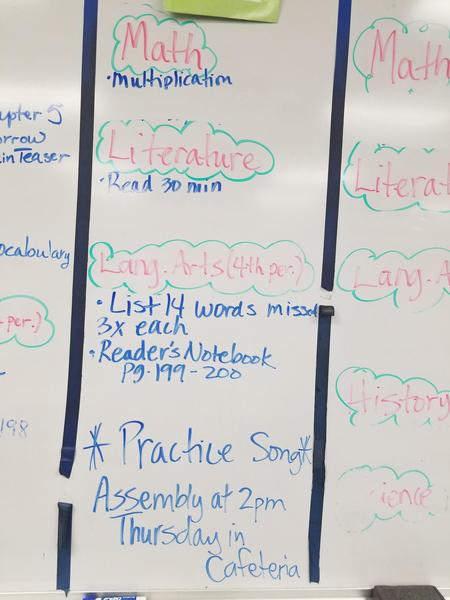 Math
•Multiplication
Literature
•Read 30 min
Lang. Arts (4th per.)
• List 14 words missed
3x each
• Reader's Notebook
pg. 199-200
* Practice Song *
Assembly at 2pm
Thursday in
Cafeteria
pter 5
orrow
inTeaser
ocabulary
per.)
198
Math
Literat
Lang. A
History
ience